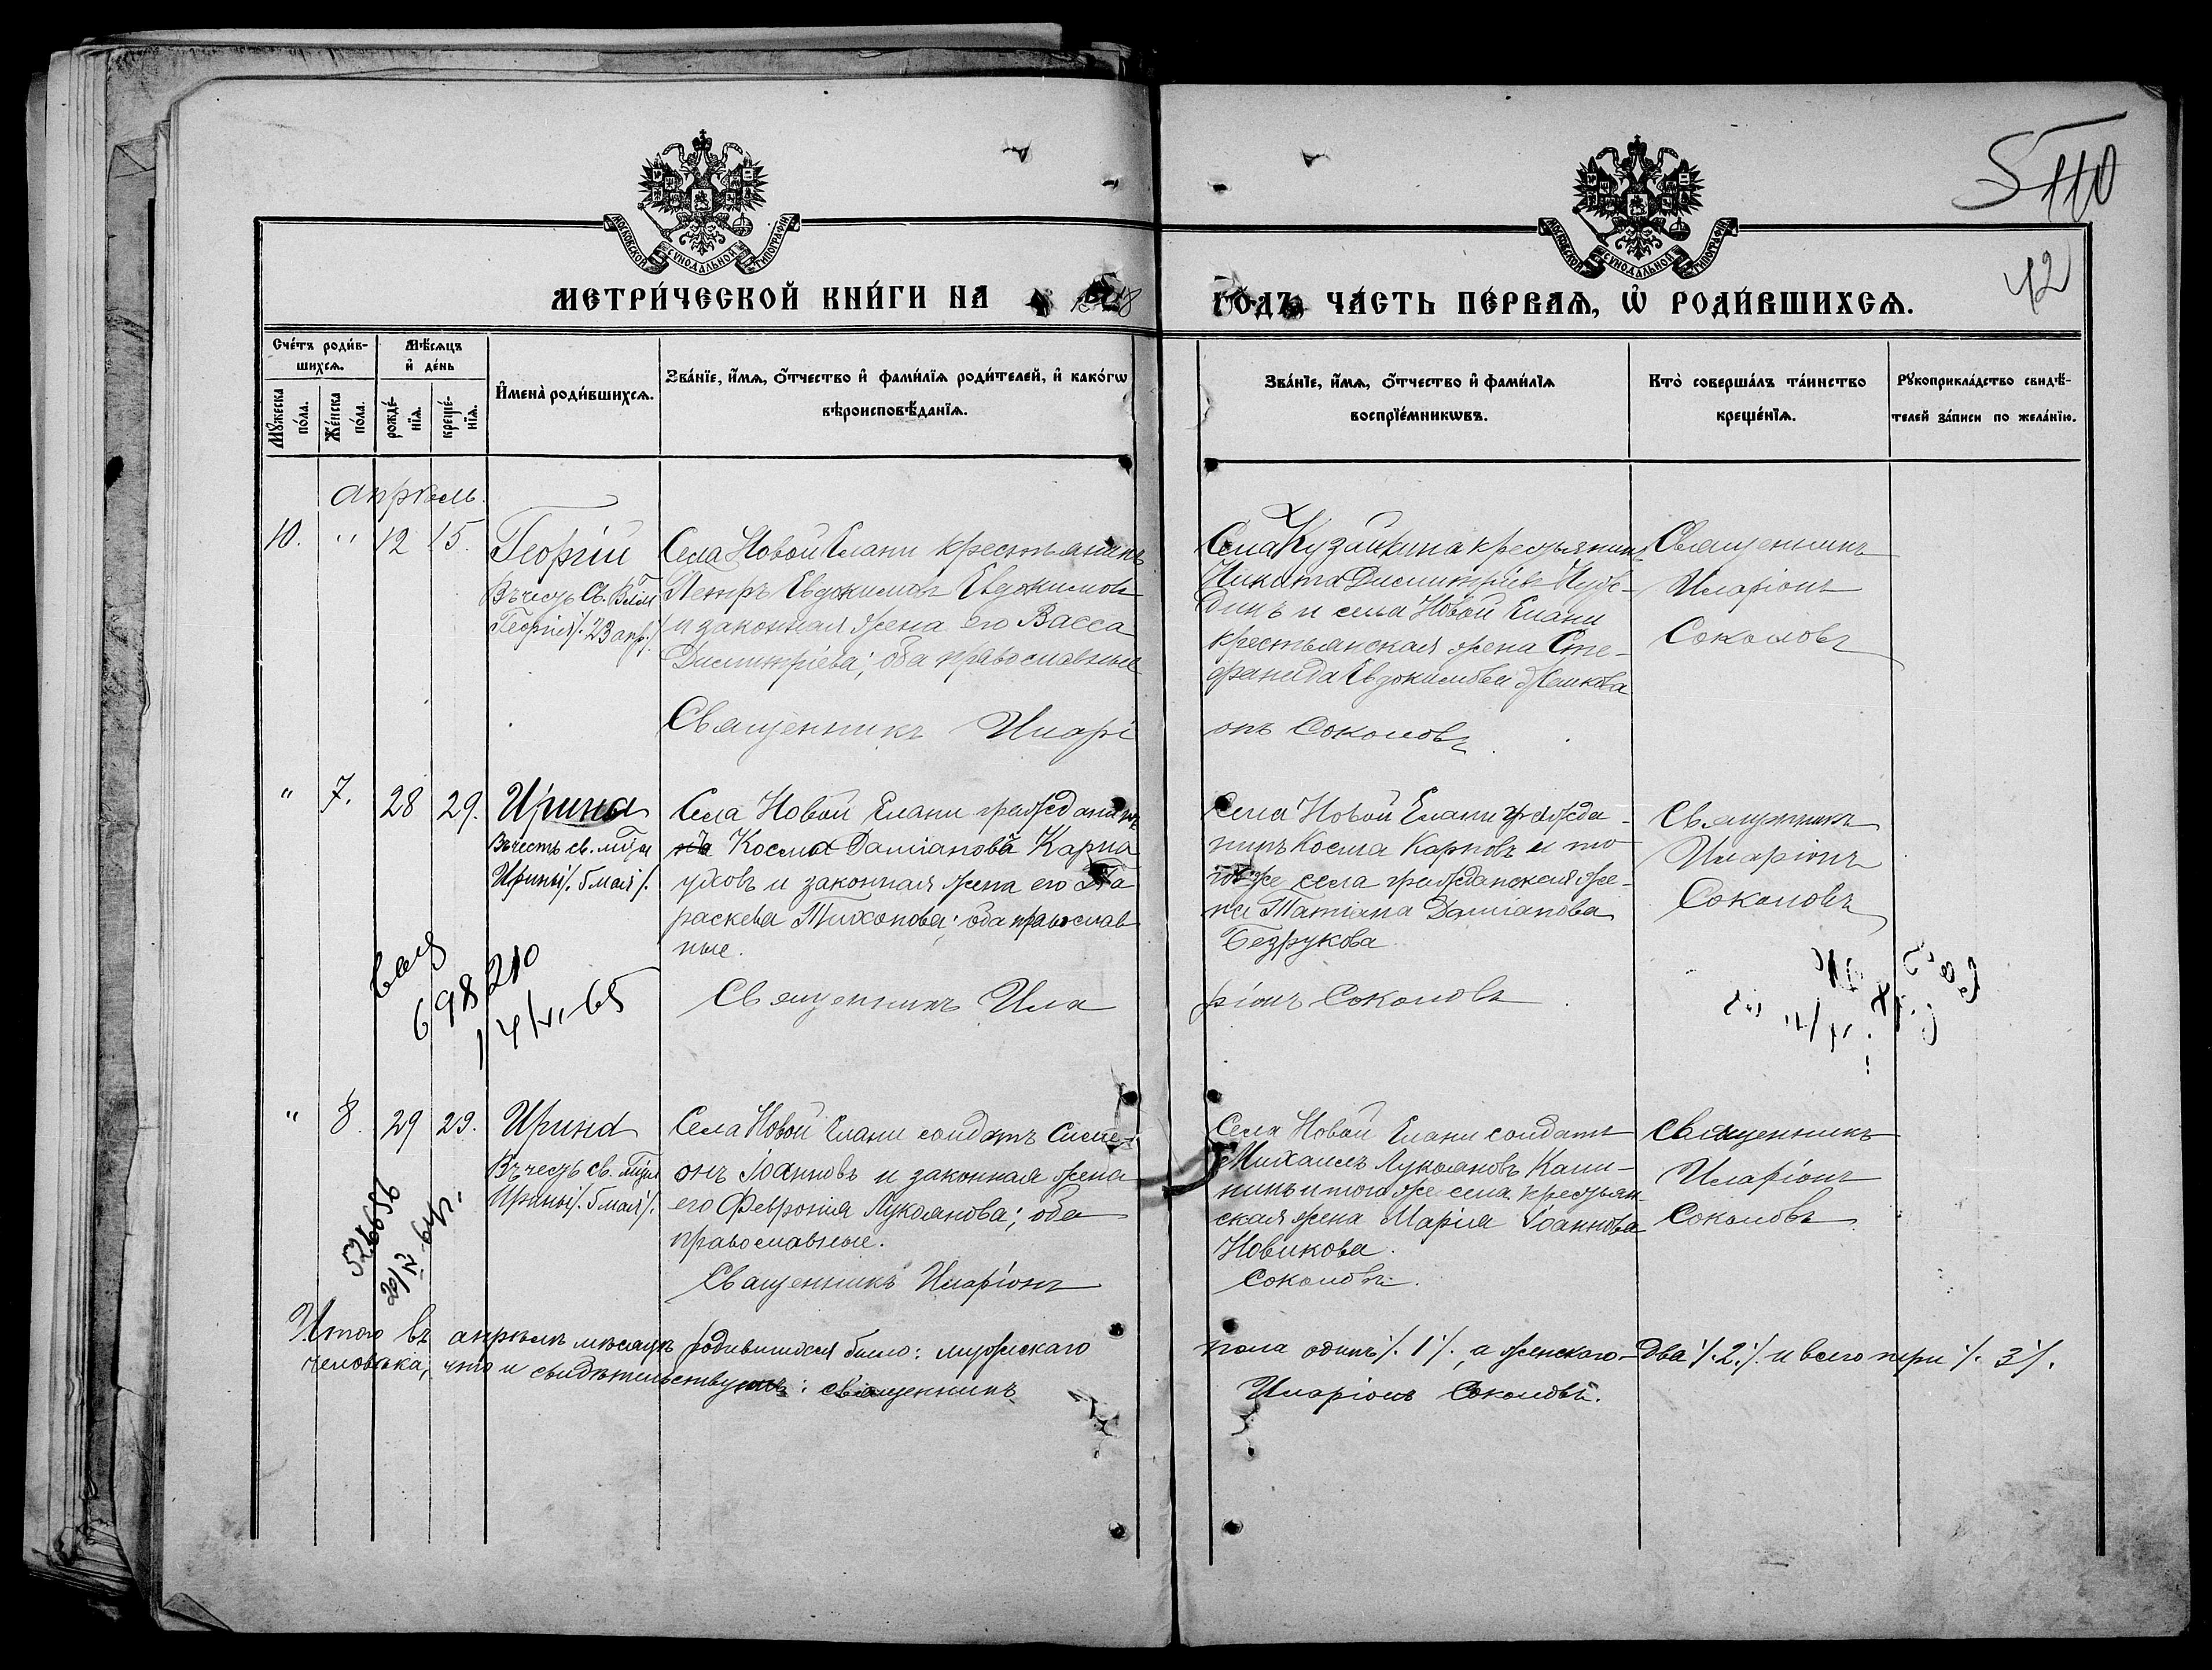 110
42
МОСКОВСКОЙ СѴНОДАЛЬНОЙ ТИПОГРАФІИ
МОСКОВСКОЙ СѴНОДАЛЬНОЙ ТИПОГРАФІИ
МЕТРИ́ЧЕСКОЙ КНИ́ГИ НА 1918
ГОДЪ, ЧА́СТЬ ПЕ́РВАѦ, Ѡ҆ РОДИ́ВШИХСѦ.
Сче́тъ роди́в-
шихсѧ.
Мꙋ́жеска по́ла.
Же́нска по́ла.
Мѣ́сѧцъ
и҆ де́нь
рожде́-нїѧ.
креще́-нїѧ.
И҆мена̀ роди́вшихсѧ.
Зва́нїе, и҆́мѧ, ѻ҆́тчество и҆ фами́лїѧ роди́телей, и҆ како́гѡ
вѣроисповѣ́данїѧ.
Зва́нїе, и҆́мѧ, ѻ҆́тчество и҆ фами́лїѧ
воспрїе́мникѡвъ.
Кто̀ соверша́лъ та́инство
креще́нїѧ.
Рꙋкоприкла́дство свидѣ́-
телей за́писи по жела́нїю.
апрѣль.
10. " 12 15. Георгій
Въ честь Св. Влкм
Георгія /. 23 апр. /.
Села Новой Елани крестьянинъ
Петръ Евдокимовъ Евдокимовъ
и законная жена его Васса
Димитріева; оба православные
Священникъ Иларі
Села Кузминка крестьянинъ
Никита Димитріев
динъ и села Новой Елани
крестьянская жена Сте-
фанида Евдокимова
онъ Соколовъ.
Священникъ
Иларіонъ
Соколовъ
" 7. 28 29. Ирина
Въ честь св. мцы
Ирины /. 5 мая /.
Села Новой Елани гражданинъ
Косма Даміановъ Карпа
уховъ и законная жена его Па
раскева Тихонова; оба православ
ные.
Священникъ Ила
Села Новой Елани гражда-
нинъ Косма Карповъ и то-
гоже села гражданская же-
на Татіана Даміанова
Безрукова.
ріонъ Соколовъ.
Священникъ
Иларіонъ
Соколовъ
698210
14/VI-65
" 8. 29 29. Ирина
Въ честь св. мцы
Ирины /. 5 мая /.
Села Новой Елани солдатъ Симе-
онъ Іоанновъ и законная жена
его Февронія Лукоянова; оба
православные.
Священникъ Иларіонъ
Села Новой Елани солдатъ
Михаилъ Лукояновъ Кали-
нинъ и тогоже села крестьян
ская жена Марія Іоаннова
Новикова.
Соколовъ.
Священникъ
Иларіонъ
Соколовъ
Итого въ апрѣлѣ мѣсяцѣ родившихся было: мужескаго
пола одинъ /. 1 /., а женскаго - два /. 2. /. и всего три /. 3 /.
человѣка, что и свидѣтельствуетъ: священникъ
Иларіонъ Соколовъ.